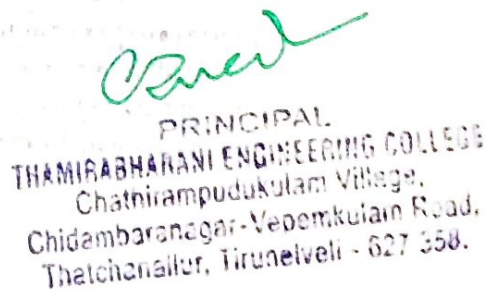 PRINCIPAL
THAMIRABHARANI ENGINEERING COLLEGE
Chathirampudukulam Village,
Chidambaranagar-Vepemkulam Road,
Thatchanallur, Tirunelveli - 627 358.